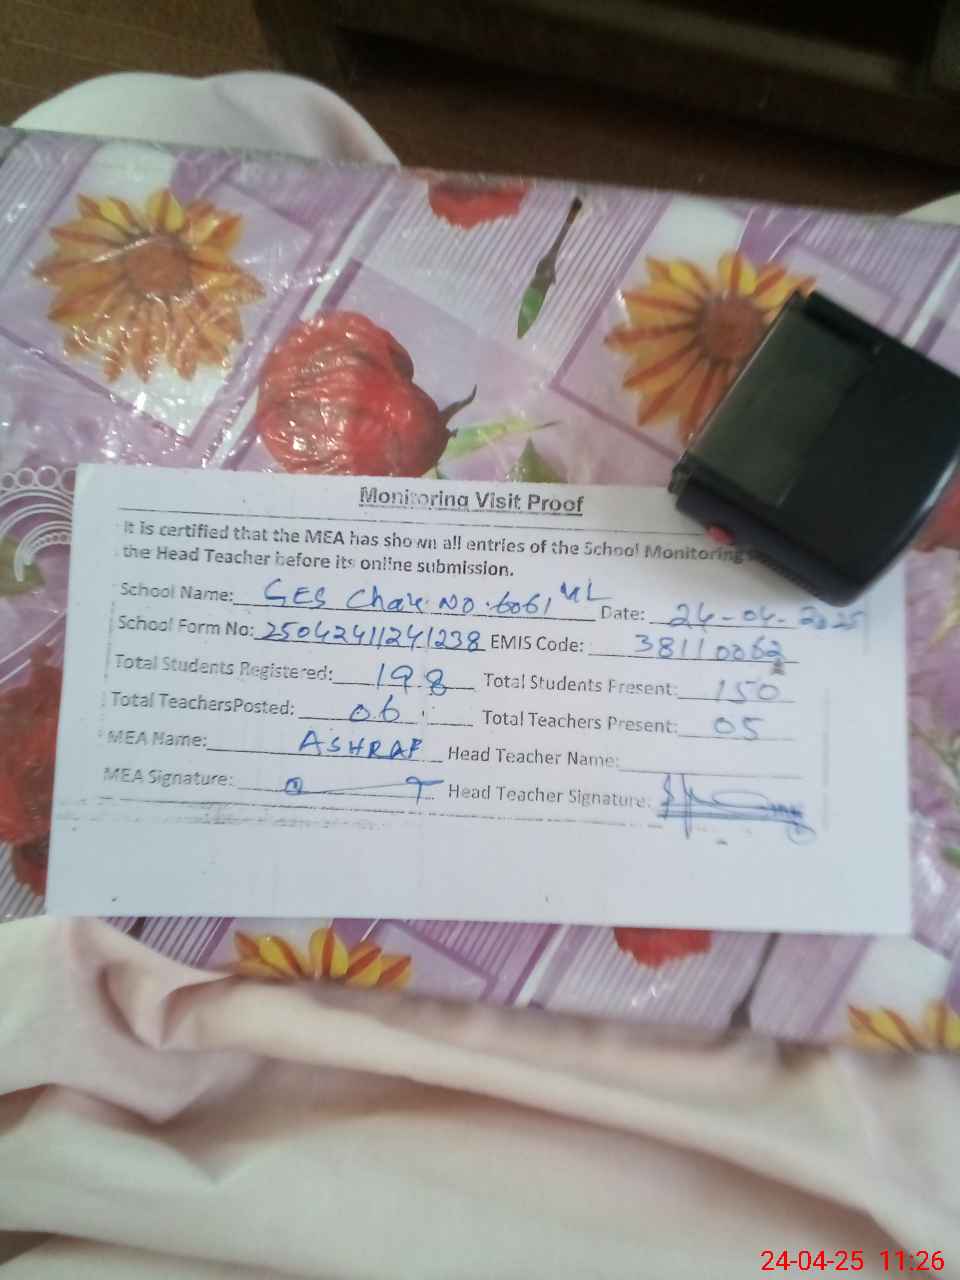 Monitoring Visit Proof
It is certified that the MEA has shown all entries of the School Monitoring
the Head Teacher before its online submission.
School Name: GES Chak No. 606/ ML Date: 24-04-2025
School Form No: 25042411241238 EMIS Code: 38110062
Total Students Registered: 198 Total Students Present: 150
Total TeachersPosted: 06 Total Teachers Present: 05
MEA Name: ASHRAF Head Teacher Name:
MEA Signature: Head Teacher Signature:
24-04-25 11:26